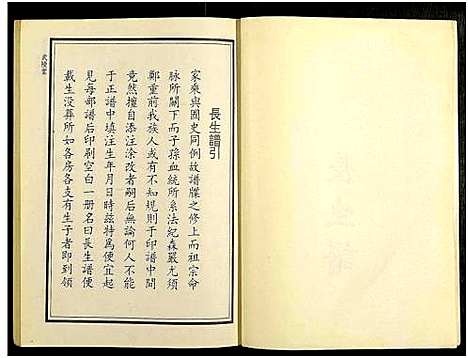 長生譜引
家乘與國史同例故譜牒之修上而祖宗命
脉所關下而子孫血統所系法紀森嚴尤須
鄭重前我族人或有不規則于印譜中間
竟然擅自添注涂改者嗣后無論何人不能
于正譜中填注生年月日時兹特為便宜起
見每部譜后印刷空白一册名曰長生譜便
載生没葬所如各房各支有生子者即到領
武陵堂